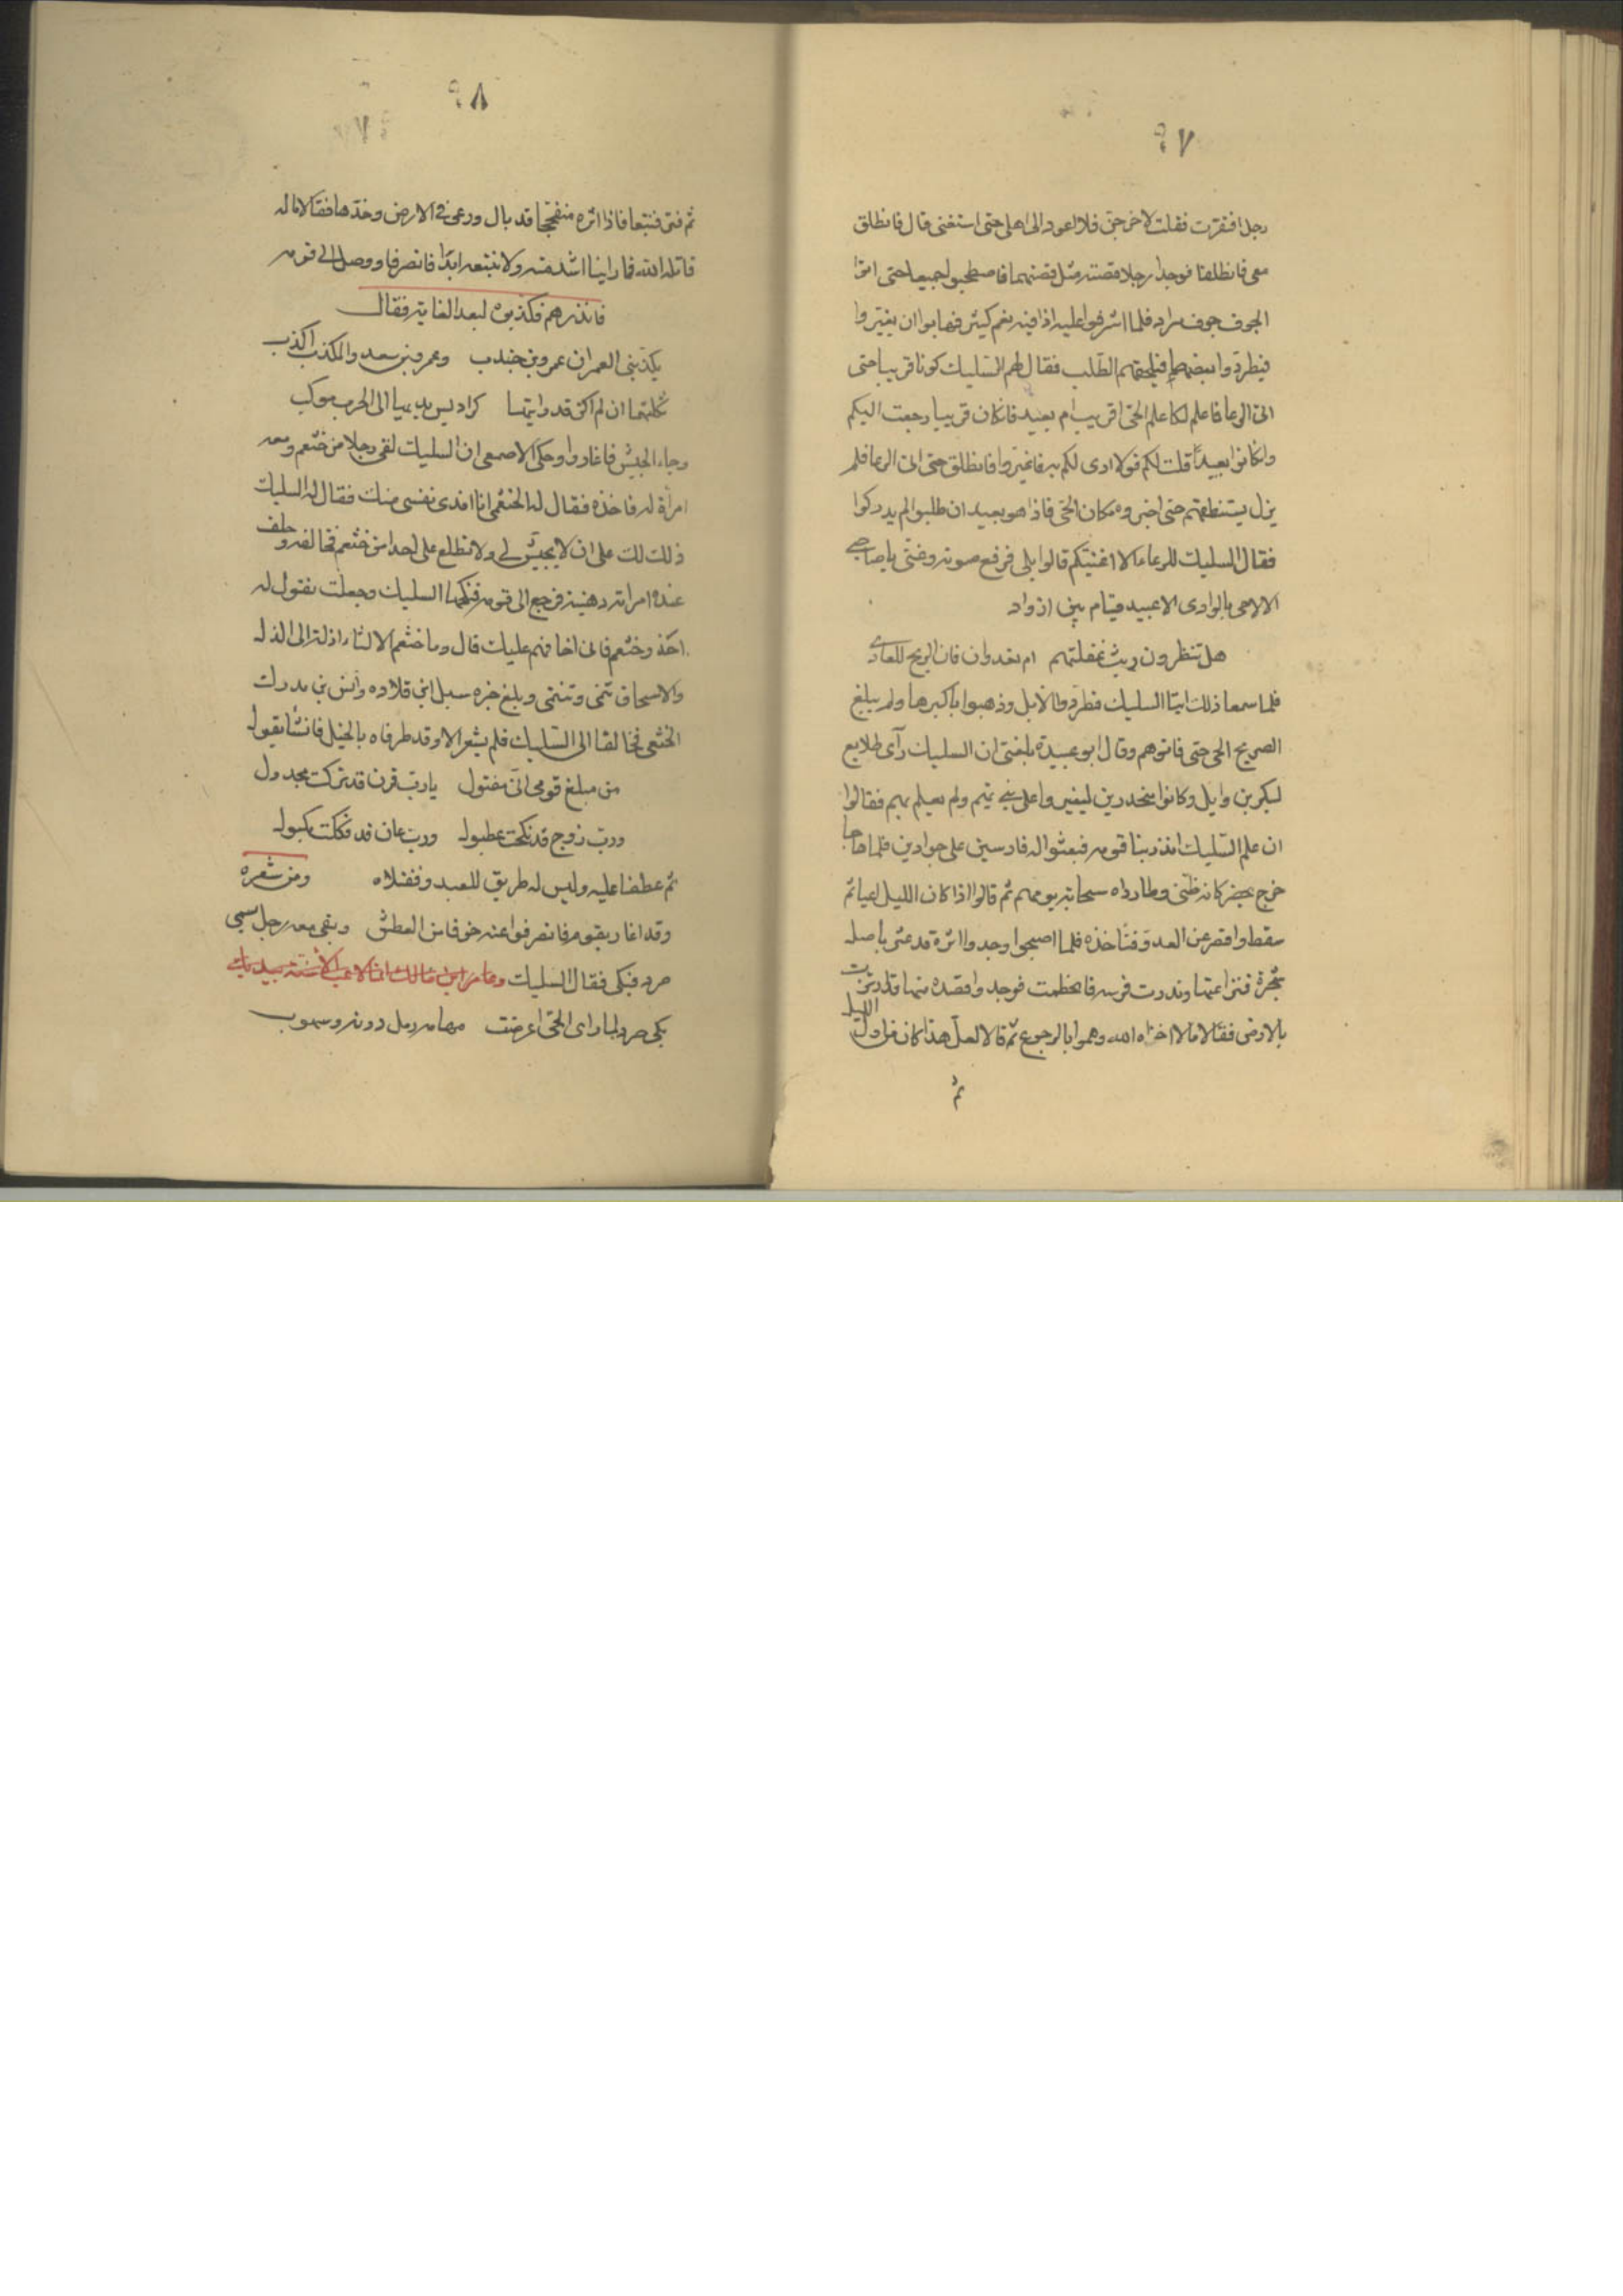 ٩٧
رجل افتقرت فقلت لاخرجن فلا اعود الى اهلى حتى استغنى قال فانطلق
معى فانطلقا فوجدا رجلا قصته مثل قصتهما فاصطحبوا جميعا حتى اتوا
الجوف جوف مراد فلما اشرفوا عليه اذا فيه نعم كثير فهابوا ان يغيروا
فيطردوا بعضها فيلحقهم الطلب فقال لهم السليك كونا قريبا حتى
اتى الرعا فاعلم لكما علم الحى اقريب ام بعيد فان كان قريبا رجعت اليكم
وان كانوا بعيدًا قلت لكم قولا ادى لكم به فاغيروا فانطلق حتى اتى الرعا فلم
يزل يستنطقهم حتى اخبروه مكان الحى فاذا هو بعيد ان طلبوا لم يدركوا
فقال السليك للرعاء الا اغنيكم قالوا بلى فرفع صوته وغنى يا صاحبي
الا لا حى بالوادى الا عبيد قيام بين اذواد
هل تنظرون ريث غفلتهم ام تعدوان فان الريح للعادي
فلما سمعا ذلك اتيا السليك فطردوا الابل وذهبوا باكثرها ولم يبلغ
الصريح الحى حتى فاتوهم وقال ابو عبيدة بلغنى ان السليك رآى طلايع
لبكر بن وايل وكانوا منحدرين ليغيروا على بني تميم ولم يعلم بهم فقالوا
ان علم السليك انذر بنا قومه فبعثوا له فارسين على جوادين فلما هاجا
خرج يحضر كانه ظبى وطارداه سحابة يومهم ثم قالوا اذا كان الليل اعيا ثم
سقط واقصر عن العدو فنأخذه فلما اصبحوا وجدوا اثره قد عثر باصل
شجرة فنزا عنها وندرت قوسه فانحطمت فوجدوا قصده منها قد ارتزت
بالارض فقالا مالا اخزاه الله وهموا بالرجوع ثم قالا لعل هذا كان من اول الليل
ثم
٩٨
ثم فتر فتبعا فاذا اثره منفججا قد بال ورعى في الارض وخدها فقالا ماله
قاتله الله فما راينا اشد منه ولا نتبعه ابدًا فانصرفا ووصل الى قومه
فانذرهم فكذبوه لبعد الغاية فقال
يكذبنى العمران عمرو بن جندب وعمرو بن سعد والمكذب اكذب
ثكلتهما ان لم اكن قد رايتها كراديس يهديها الى الحرب موكب
وجاء الجيش فاغاروا وحكى الاصمعى ان السليك لقى رجلا من خثعم ومعه
امرأة له فاخذه فقال له الخثعمى انا افدى نفسى منك فقال له السليك
ذلك لك على ان لا يجيش لى ولا تطلع على احدا من خثعم فحالفه وحلف
عنده امراته رهينة فرجع الى قومه فنكحها السليك وجعلت تقول له
احذر خثعم فانى اخافهم عليك قال وما خثعم الا لئام اذلة الى الذل
والاسحاق تنمى وتنتمى وبلغ خبره سبل ابن قلاده وانس بن مدرك
الخثعمى فخالفا الى السليك فلم يشعر الا وقد طرقاه بالخيل فانشأ يقول
من مبلغ قومى انى مقتول يا رب قرن قد تركت مجدول
ورب زوج قد نكحت عطبول ورب عان قد فككت مكبول
ثم عطفا عليه وليس له طريق للعدو فقتلاه ومن شعره
وقد اغار بقومه فانصرفوا عنه خوفا من العطش وبقى معه رجل يسمى
صرد فبكى فقال السليك
بكى صرد لما راى الحى اعرضت مهامه رمل دونه وسهوب